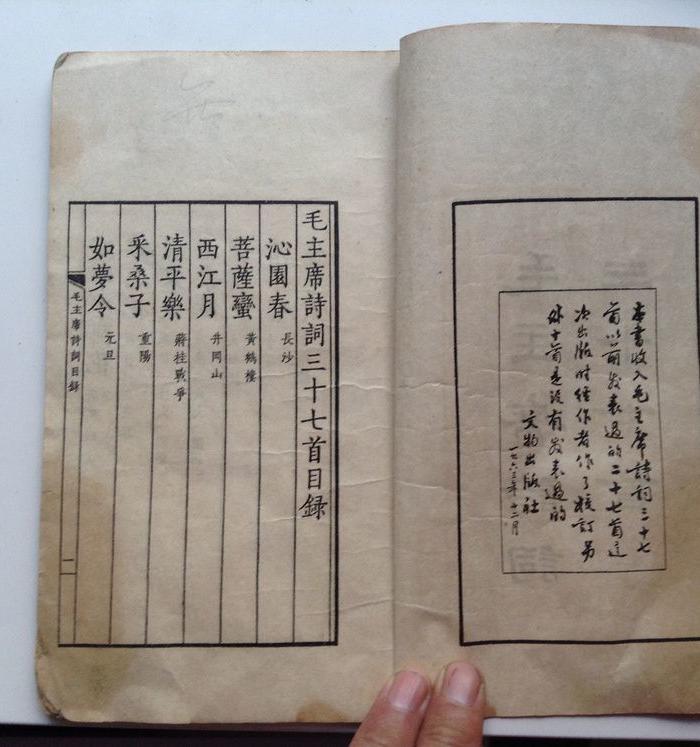 本書收入毛主席詩詞三十七
首以前發表過的二十七首這
次出版時經作者作了校訂另
外十首是没有發表過的
文物出版社
一九六三年十二月
毛主席詩詞三十七首目録
沁園春 長沙
菩薩蠻 黃鶴樓
西江月 井岡山
清平樂 蔣桂戰爭
采桑子 重陽
如夢令 元旦
毛主席詩詞目録
一